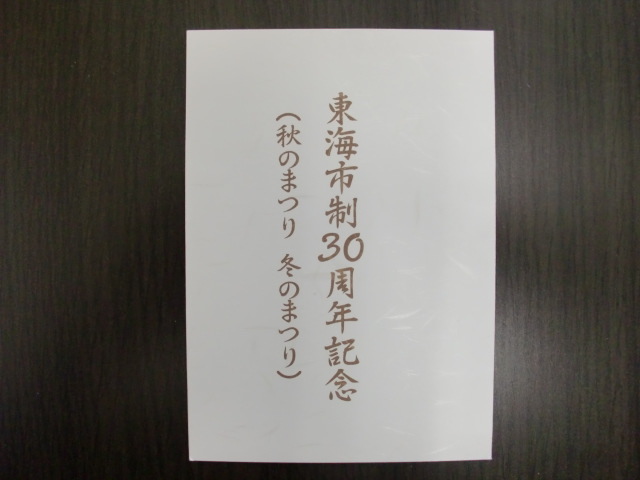 東海市制30周年記念
（秋のまつり 冬のまつり）